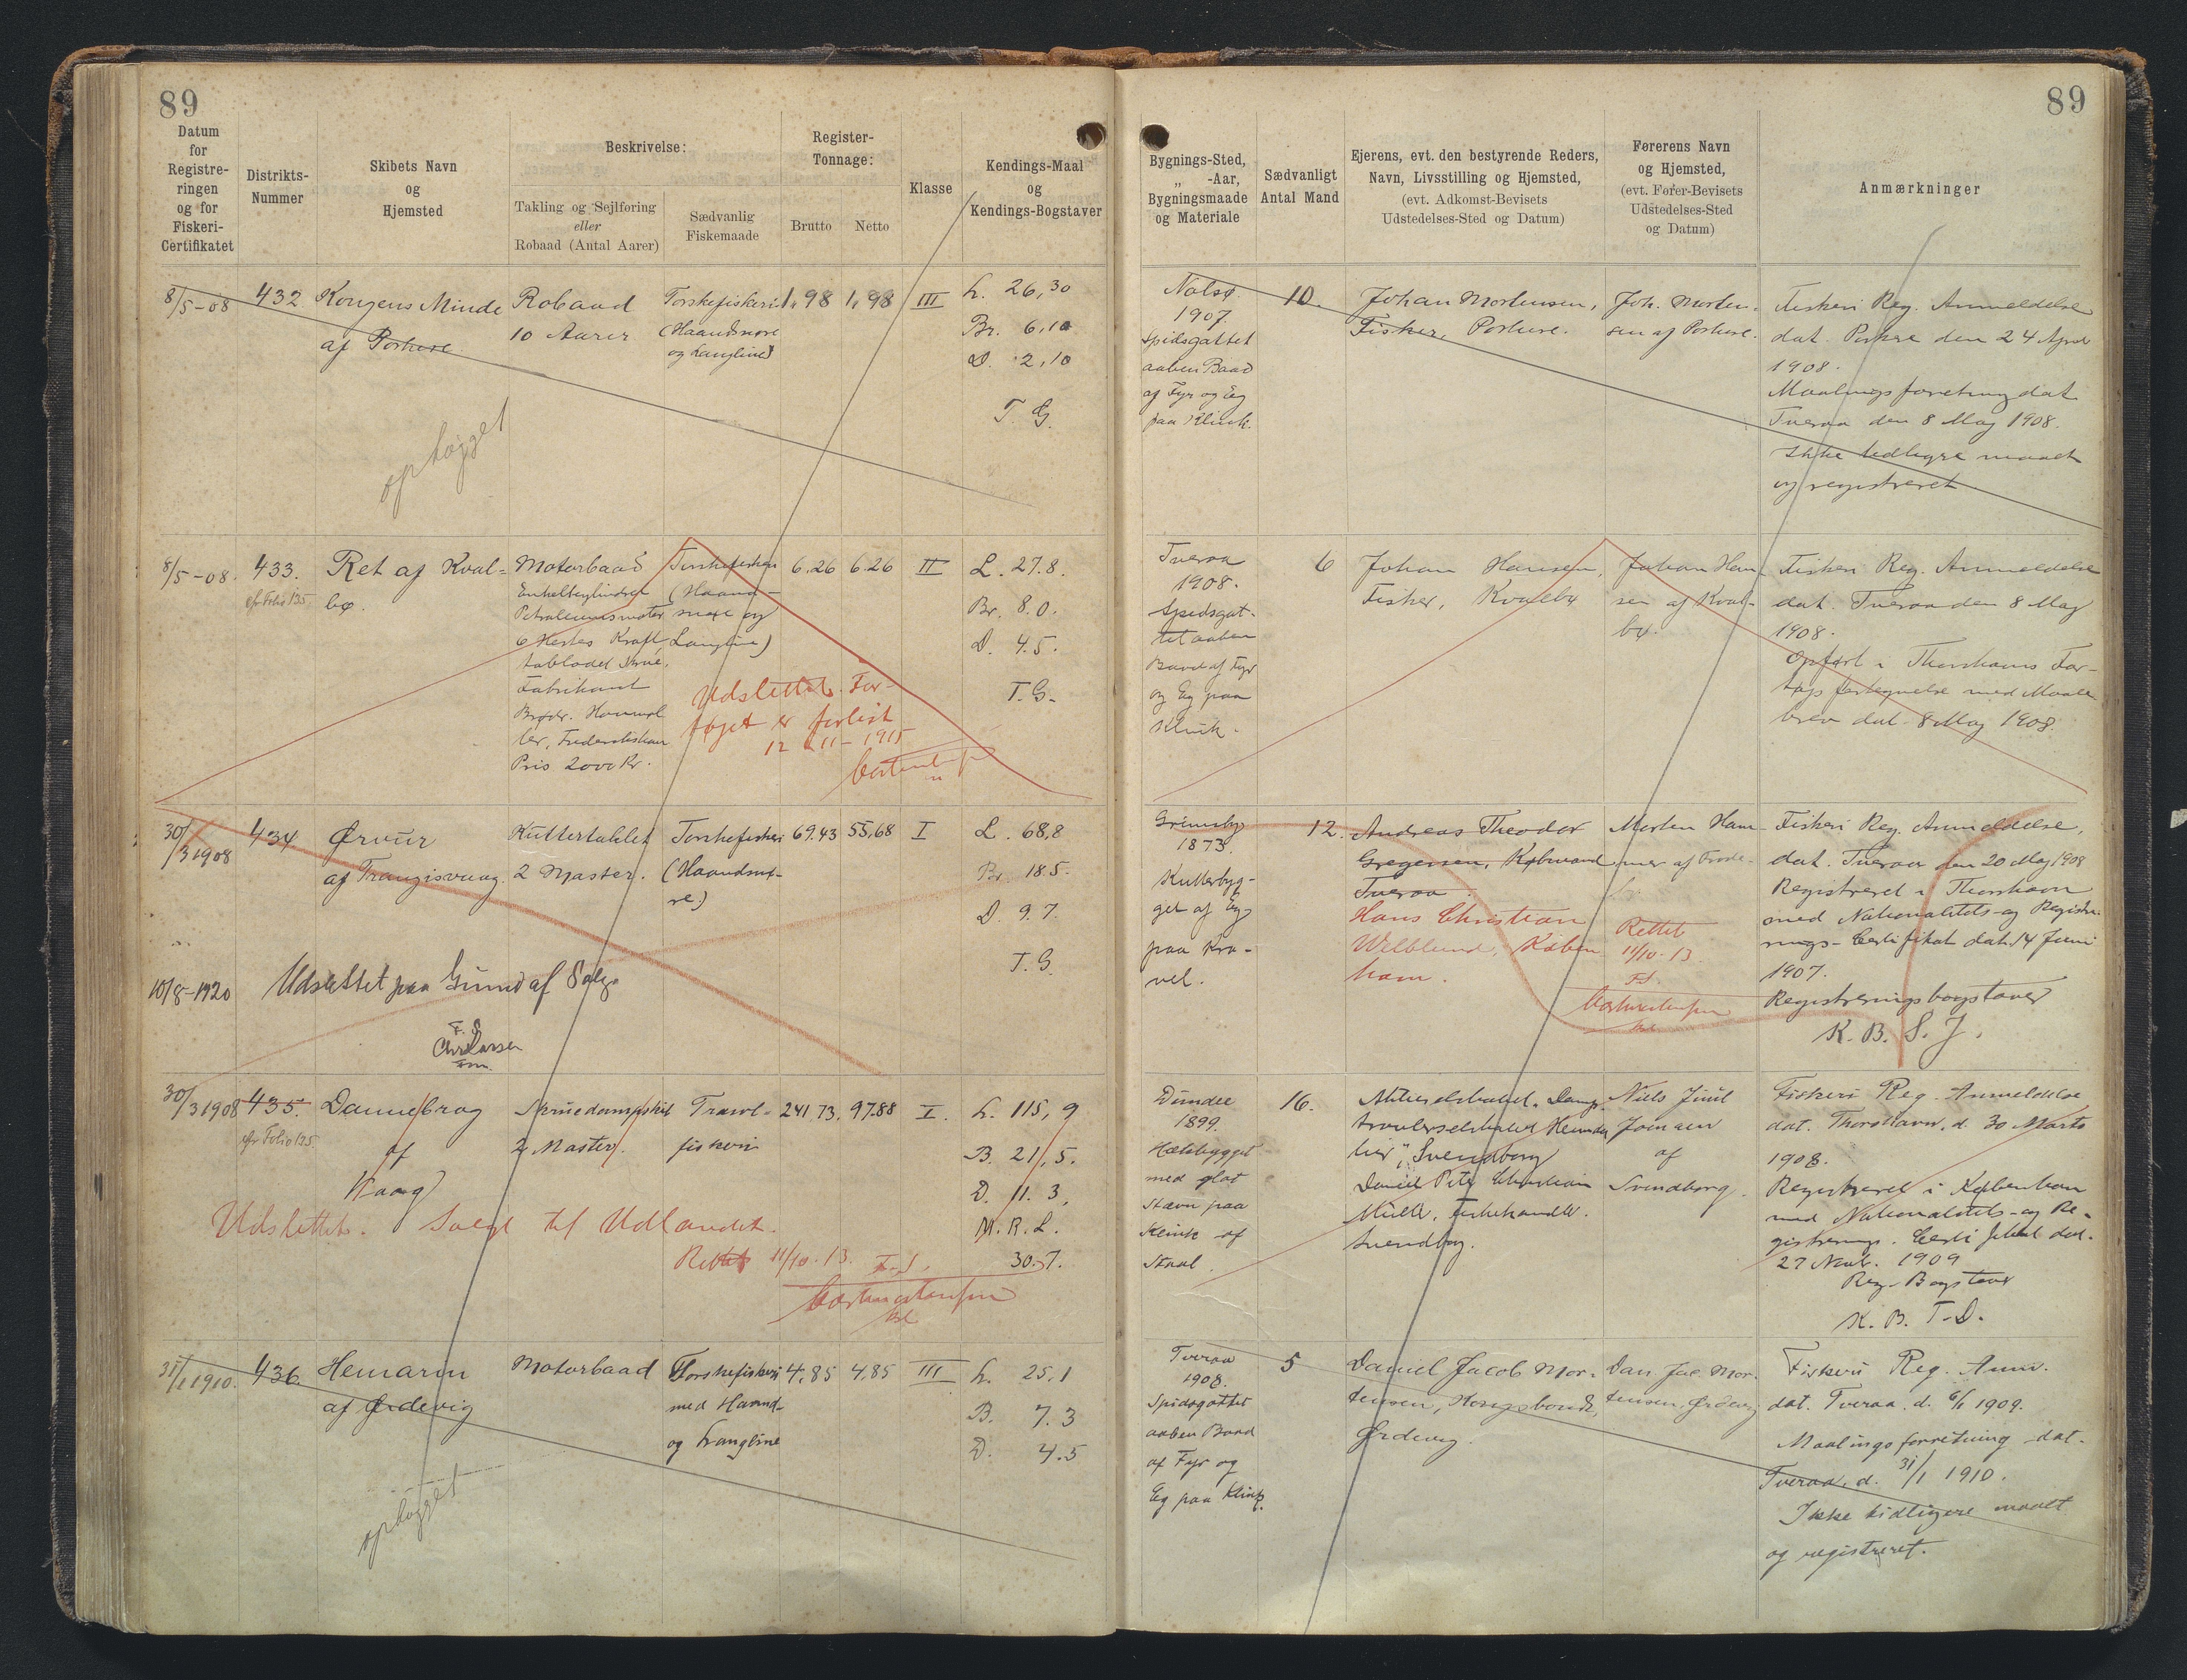 89
89
Datum
for
Registre-
ringen
og for
Fiskeri-
Certifikatet
Distrikts-
Nummer
Skibets Navn
og
Hjemsted
Beskrivelse:
Takling og Sejlføring
eller
Robaad (Antal Aarer)
Sædvanlig
Fiskemaade
Register-
Tonnage:
Brutto
Netto
Klasse
Kendings-Maal
og
Kendings-Bogstaver
Bygnings-Sted,
„ -Aar,
Bygningsmaade
og Materiale
Sædvanligt
Antal Mand
Ejerens, evt. den bestyrende Reders,
Navn, Livsstilling og Hjemsted,
(evt. Adkomst-Bevisets
Udstedelses-Sted og Datum)
Førerens Navn
og Hjemsted,
(evt. Fører-Bevisets
Udstedelses-Sted
og Datum)
Anmærkninger
8/5-08
432
Kongens Minde
af Porkere
ophøgget
Robaad
10 Aarer
Torskefiskeri
(Haandsnøre
og Langline)
1,98
1,98
III
L. 26,30
Br. 6,10
D. 2,10
T. G.
Nolsø
1907.
Spidsgattet
aaben Baad
af Fyr og Eg
paa Klink.
10.
Johan Mortensen,
Fisker, Porkere.
Joh. Morten-
sen af Porkere.
Fiskeri Reg. Anmeldelse
dat. Porkere den 24 April
1908.
Maalingsforretning dat.
Tveraa den 8 Maj 1908.
Ikke tidligere maalt
og registreret
8/5-08.
433.
cfr Folio 135.
Ret af Kval-
bø.
Motorbaad
Enkeltcylindret
Petroleumsmotor
6 Hestes Kraft,
tobladet Skrue,
Fabrikant
Brødr. Houmøl-
ler, Frederikshavn
Pris 2000 Kr.
Torskefiskeri
(Haand-
snøre og
Langline)
6.26
6.26
II
L. 27.8.
Br. 8.0.
D. 4.5.
T. G.
Udslettet. Far-
tøjet er forlist
12-11-1915
Tveraa
1908.
Spidsgat-
tet aaben
Baad af Fyr
og Eg paa
Klink.
6
Johan Hansen,
Fisker, Kvalbø
Johan Han-
sen af Kval-
bø.
Fiskeri Reg. Anmeldelse
dat. Tveraa den 8 Maj
1908.
Opført i Thorshavns Far-
tøjsfortegnelse med Maale-
brev dat. 8 Maj 1908.
30/3 1908
434
Ørvur
af Trangisvaag.
Kuttertaklet
2 Master.
Torskefiskeri
(Haandsnø-
re)
69.43
55,68
I
L. 68,8
Br. 18.5.
D. 9.7.
T. G.
10/8-1920
Udslettet paa Grund af Salg.
F. S
Chr Larsen
Fm.
Grimsby
1873.
Kutterbyg-
get af Eg
paa Kra-
vel.
12.
Andreas Theodor
Gregersen, Købmand
Tveraa.
Hans Christian
Welblund, Køben-
havn.
Morten Ham-
mer af Frode-
bø.
Rettet
11/10.13.
F.S.
Fiskeri Reg. Anmeldelse,
dat. Tveraa den 20 Maj 1908
Registreret i Thorshavn
med Nationalitets- og Registre-
rings-Certifikat dat. 14 Juni
1907.
Registreringsbogstaver
K. B. S. J.
30/3 1908
435.
cfr Folio 135.
Dannebrog
af
Waag
Skruedampskib
2 Master.
Trawl-
fiskeri
241.73.
97.88
I.
L. 115, 9
B. 21, 5.
D. 11. 3.
M. R. L.
30. 7.
Udslettet. Solgt til Udlandet.
Rettet 11/10.13. F.S.
Dundee
1899.
Hælsbygget
med glat
Stævn paa
Klink af
Staal.
16.
Aktieselskabet „Damp-
trawlerselskabet
Svendborg
Daniel Peter Christian
Müller, Fiskehandler.
Svendborg.
Niels Juul
Joensen
af
Svendborg.
Fiskeri Reg. Anmeldelse
dat. Thorshavn, d. 30 Marts
1908.
Registreret i København
med Nationalitets- og Re-
gistrerings-Certifikat dat.
27 Novb. 1909
Reg-Bogstaver
K. B. T. D.
31/1 1910.
436.
Hemarin
af Ørdevig
ophøgget
Motorbaad
Torskefiskeri
med Haand-
og Langline
4,85
4,85
III
L. 25,1
B. 7.3
D. 4.5
Tveraa
1908.
Spidsgattet
aaben Baad
af Fyr og
Eg paa Klink.
5
Daniel Jacob Mor-
tensen, Kongsbonde,
Ørdevig.
Dan. Jac. Mor-
tensen, Ørdevig
Fiskeri Reg. Anm.
dat. Tveraa, d. 6/1 1909.
Maalingsforretning dat.
Tveraa, d. 31/1 1910.
Ikke tidligere maalt
og registreret.